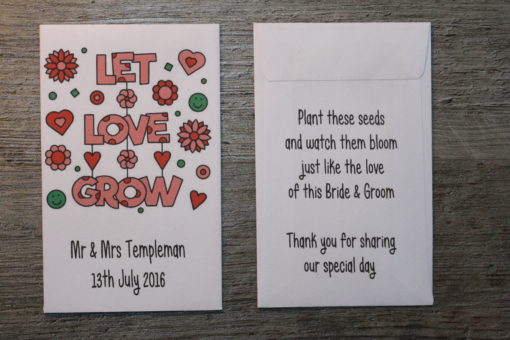 LET
LOVE
GROW
Mr & Mrs Templeman
13th July 2016
Plant these seeds
and watch them bloom
just like the love
of this Bride & Groom
Thank you for sharing
our special day